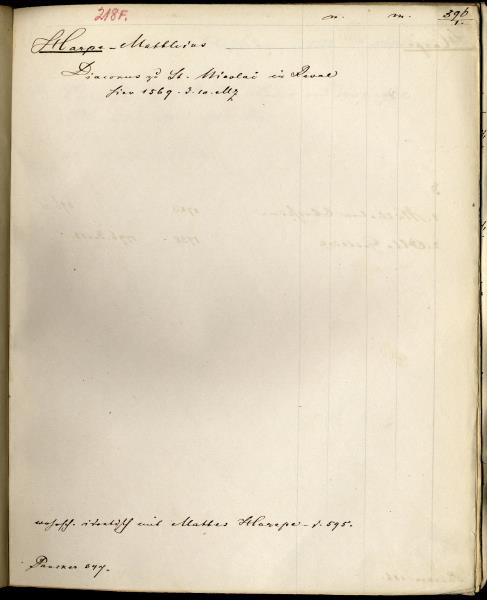 218F.
n. m. 596/1.
Harpe - Matthäus
Diaconus zu St. Nicolai in Reval
hier 1569. d. 10. Mz
wahrsch. identisch mit Mattes Harpe - S. 595.
Paucker 347.